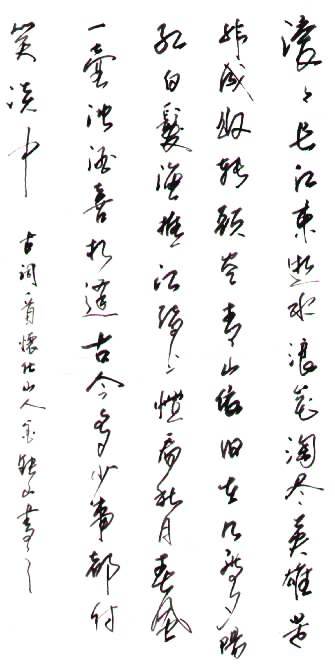 滚々长江東逝水浪花淘尽英雄是
非成败转头空青山依旧在几度夕陽
红白髮渔樵江渚上惯看秋月春风
一壶浊酒喜相逢古今多少事都付
笑谈中 古词一首懷山人山书之